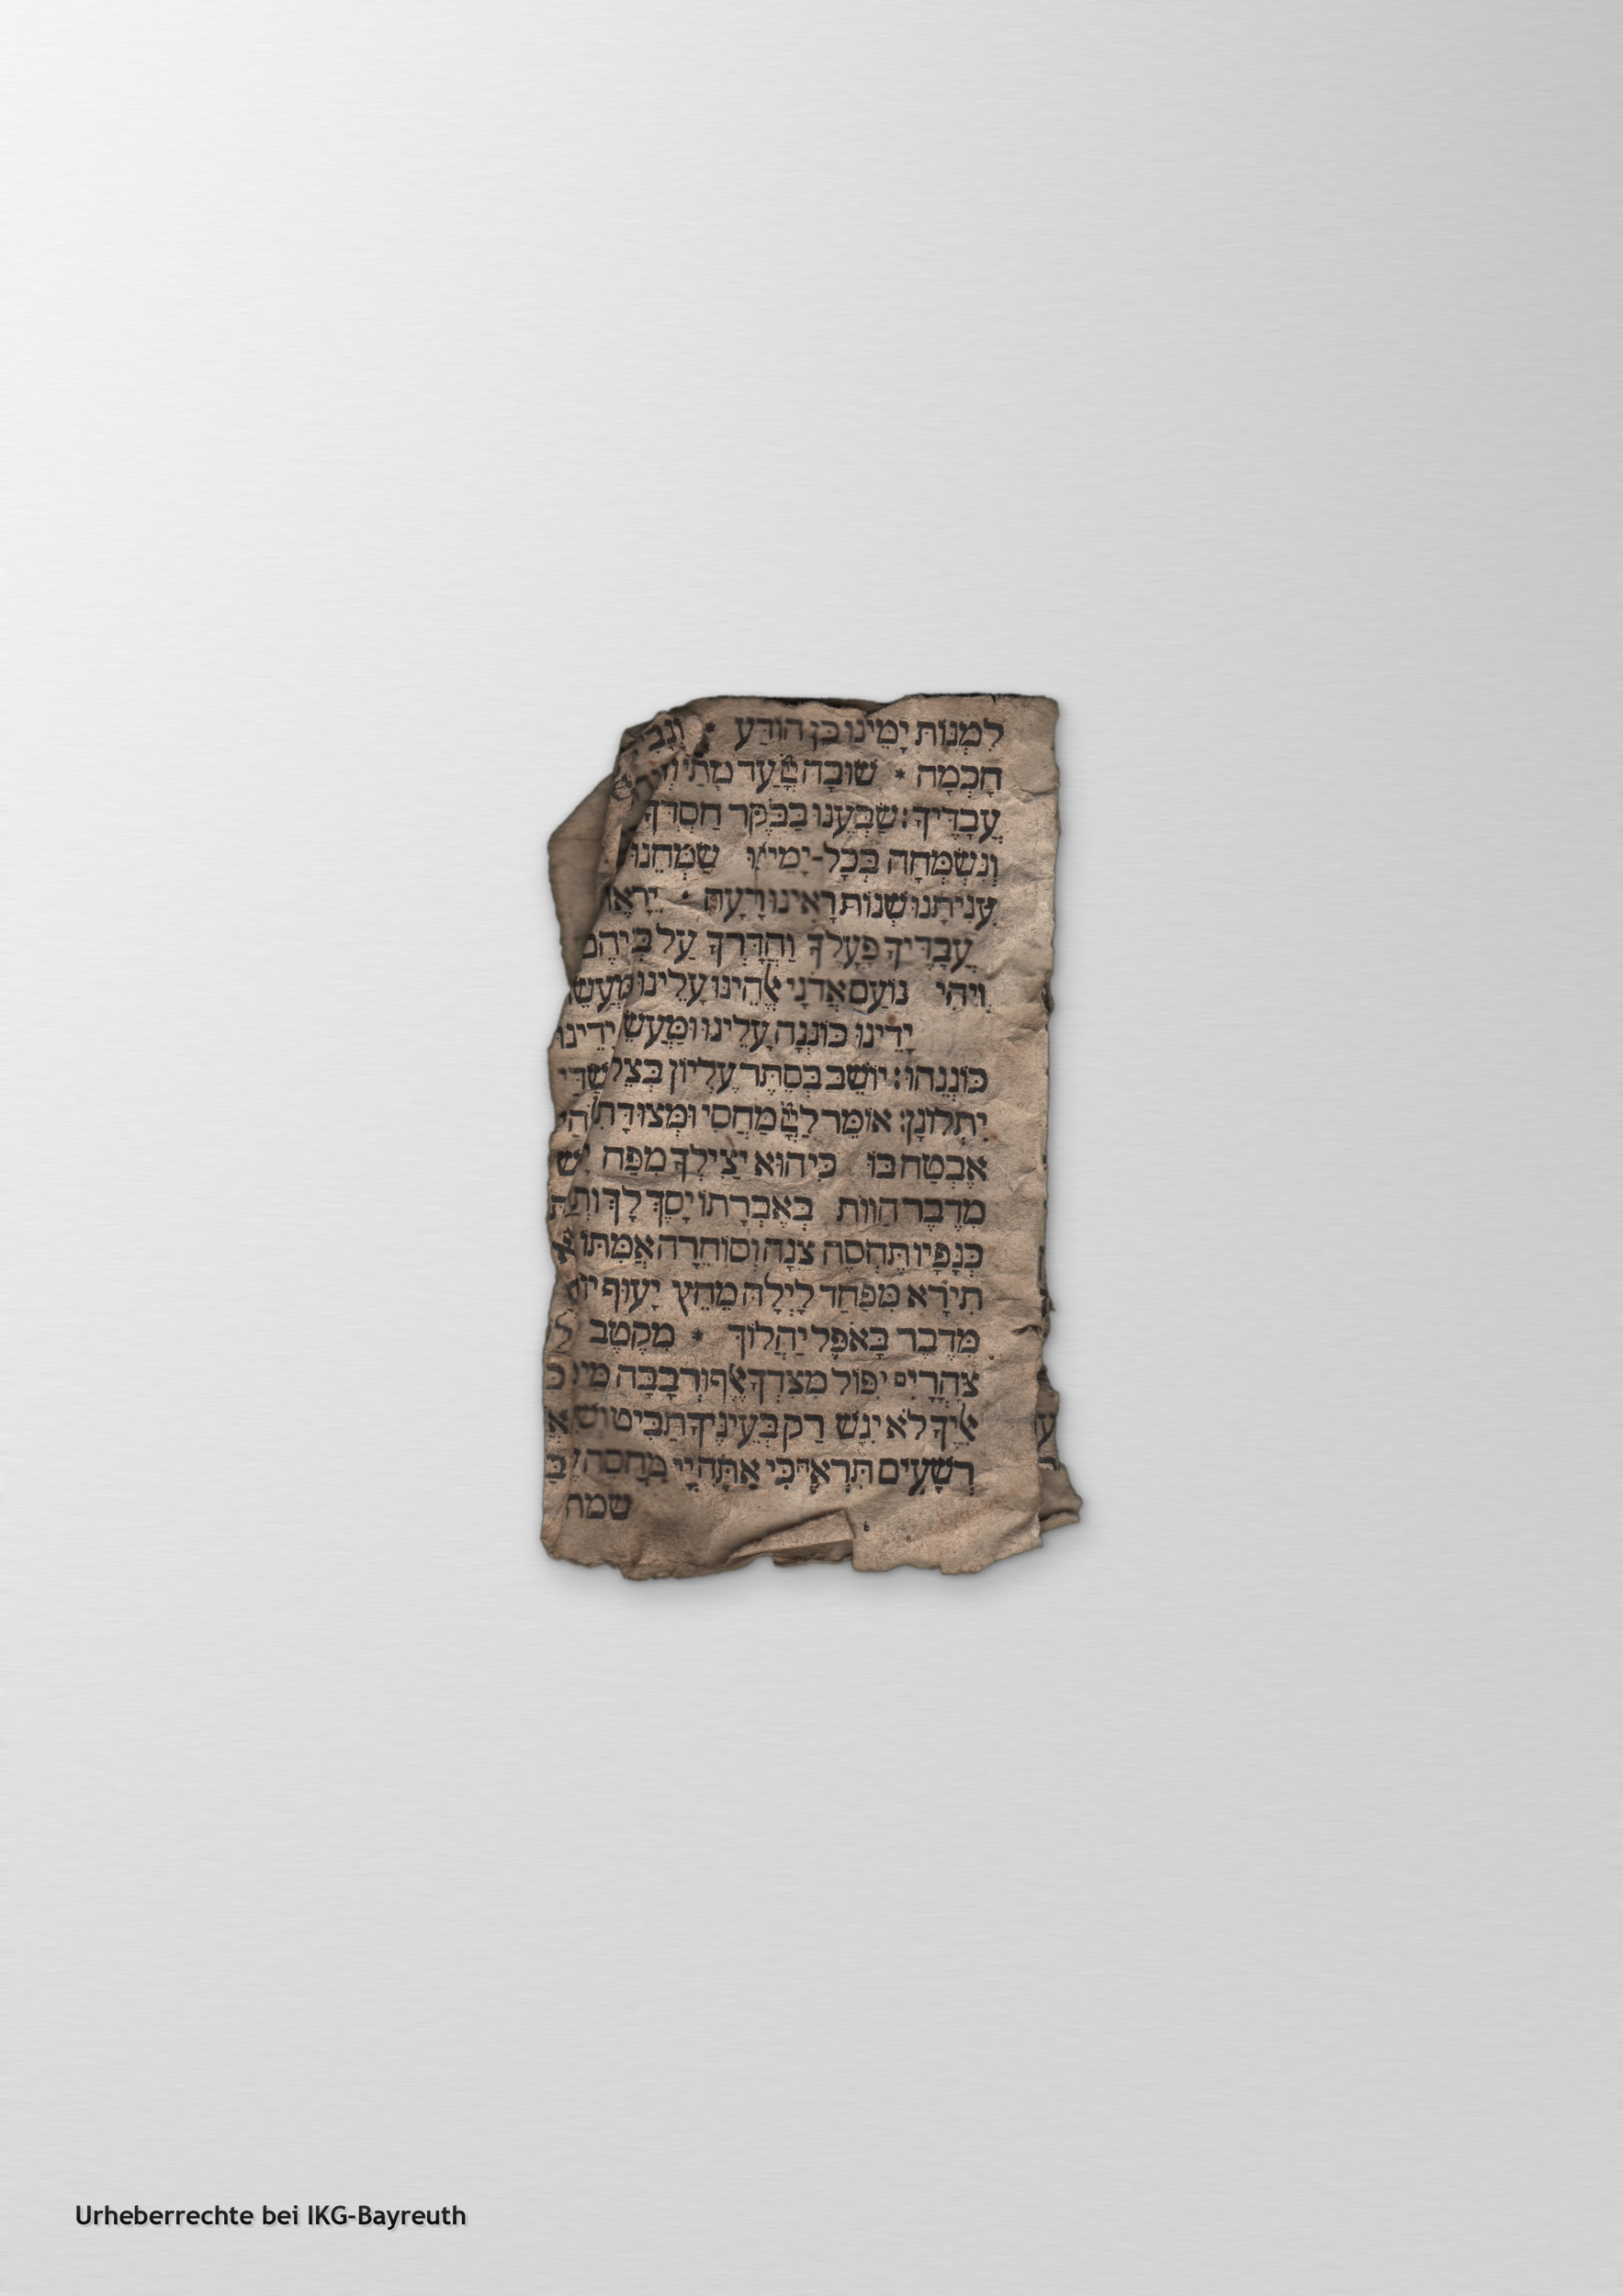 לִמְנוֹת יָמֵינוּ כֵּן הוֹדַע * וְנָבִ
חָכְמָה * שׁוּבָה יְיָ עַד מָתַי
עֲבָדֶיךָ: שַׂבְּעֵנוּ בַבֹּקֶר חַסְדֶּךָ
וְנִשְׂמְחָה בְּכָל-יָמֵינוּ שַׂמְּחֵנוּ
עִנִּיתָנוּ שְׁנוֹת רָאִינוּ רָעָה * יֵרָאֶ
עֲבָדֶיךָ פָעֳלֶךָ וַהֲדָרְךָ עַל בְּיֵהֶם
וִיהִי נוֹעַם אֲדֹנָי אֱלֹהֵינוּ עָלֵינוּ מַעֲשֵׂ
יָדֵינוּ כּוֹנְנָה עָלֵינוּ וּמַעֲשֵׂ יָדֵינוּ
כּוֹנְנֵהוּ: יוֹשֵׁב בְּסֵתֶר עֶלְיוֹן בְּצֵל שַׁדַּי
יִתְלוֹנָן: אוֹמֵר לַיְיָ מַחְסִי וּמְצוּדָתִ
אֶבְטַח בּוֹ כִּי הוּא יַצִּילְךָ מִפַּח יָ
מִדֶּבֶר הַוּוֹת בְּאֶבְרָתוֹ יָסֶךְ לָךְ וְתַ
כְּנָפָיו תֶּחְסֶה צִנָּה וְסוֹחֵרָה אֲמִתּוֹ
תִירָא מִפַּחַד לָיְלָה מֵחֵץ יָעוּף יוֹ
מִדֶּבֶר בָּאֹפֶל יַהֲלוֹךְ * מִקֶּטֶב
צָהֳרָיִם יִפּוֹל מִצִּדְּךָ אֶלֶף וּרְבָבָה מִי
אֵלֶיךָ לֹא יִגָּשׁ רַק בְּעֵינֶיךָ תַבִּיט וְשִׁ
רְשָׁעִים תִּרְאֶה כִּי אַתָּה יְיָ מַחְסִה
שמת
Urheberrechte bei IKG-Bayreuth